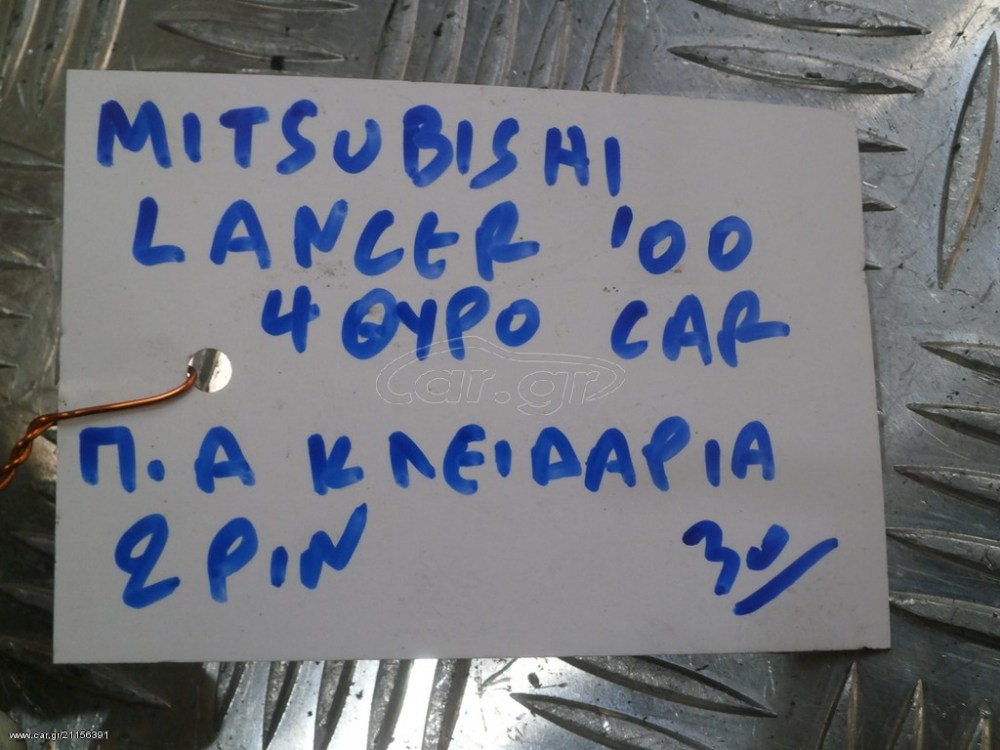 MITSUBISHI
LANCER '00
4 ΘΥΡΟ CAR
car.gr
Π.Α ΚΛΕΙΔΑΡΙΑ
2 PIN 30/
www.car.gr/21156391